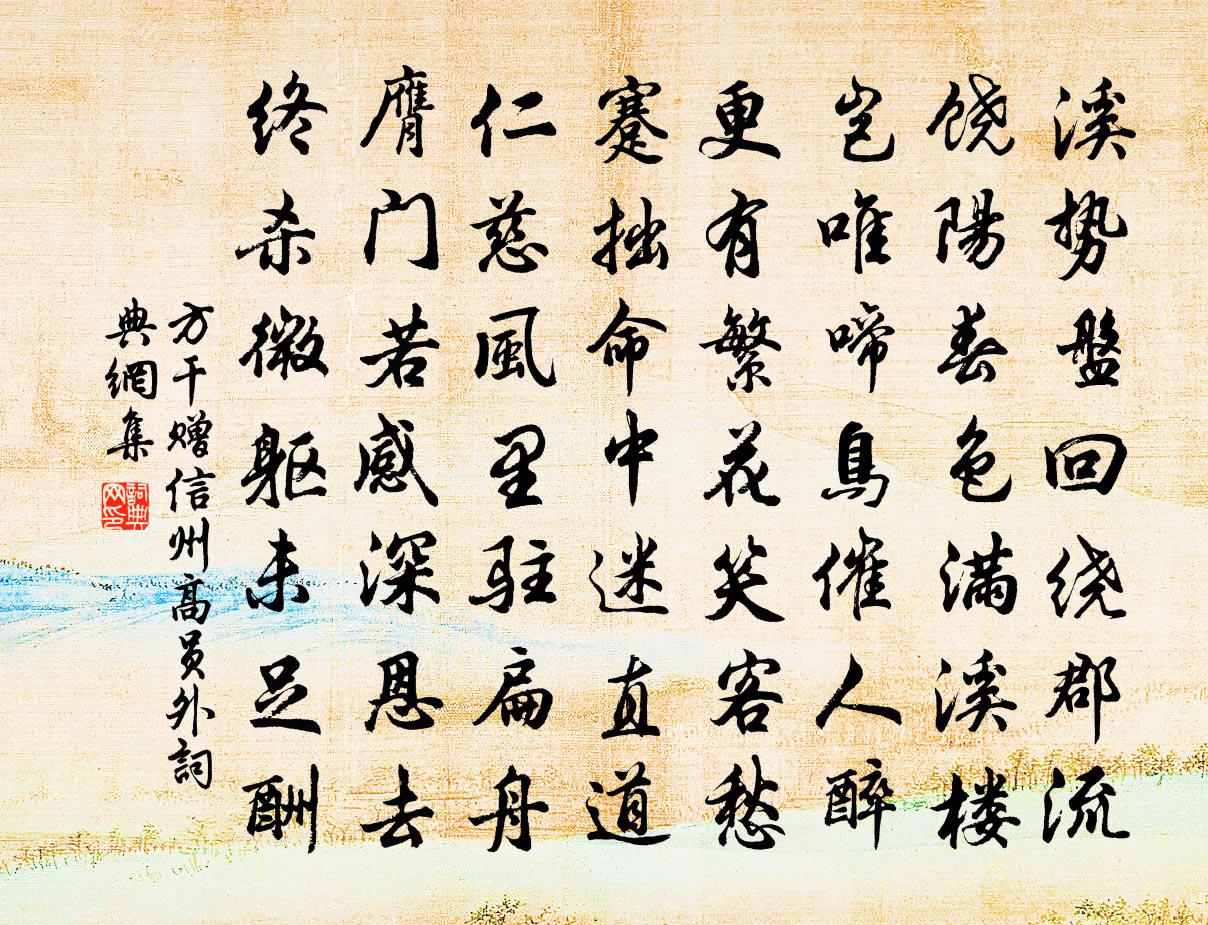 溪势盤回绕郡流
饶陽春色满溪楼
岂唯啼鳥催人醉
更有繁花笑客愁
蹇拙命中迷直道
仁慈風里驻扁舟
膺门若感深恩去
终杀微躯未足酬
方干赠信州高員外詞
典網集
詞典网印